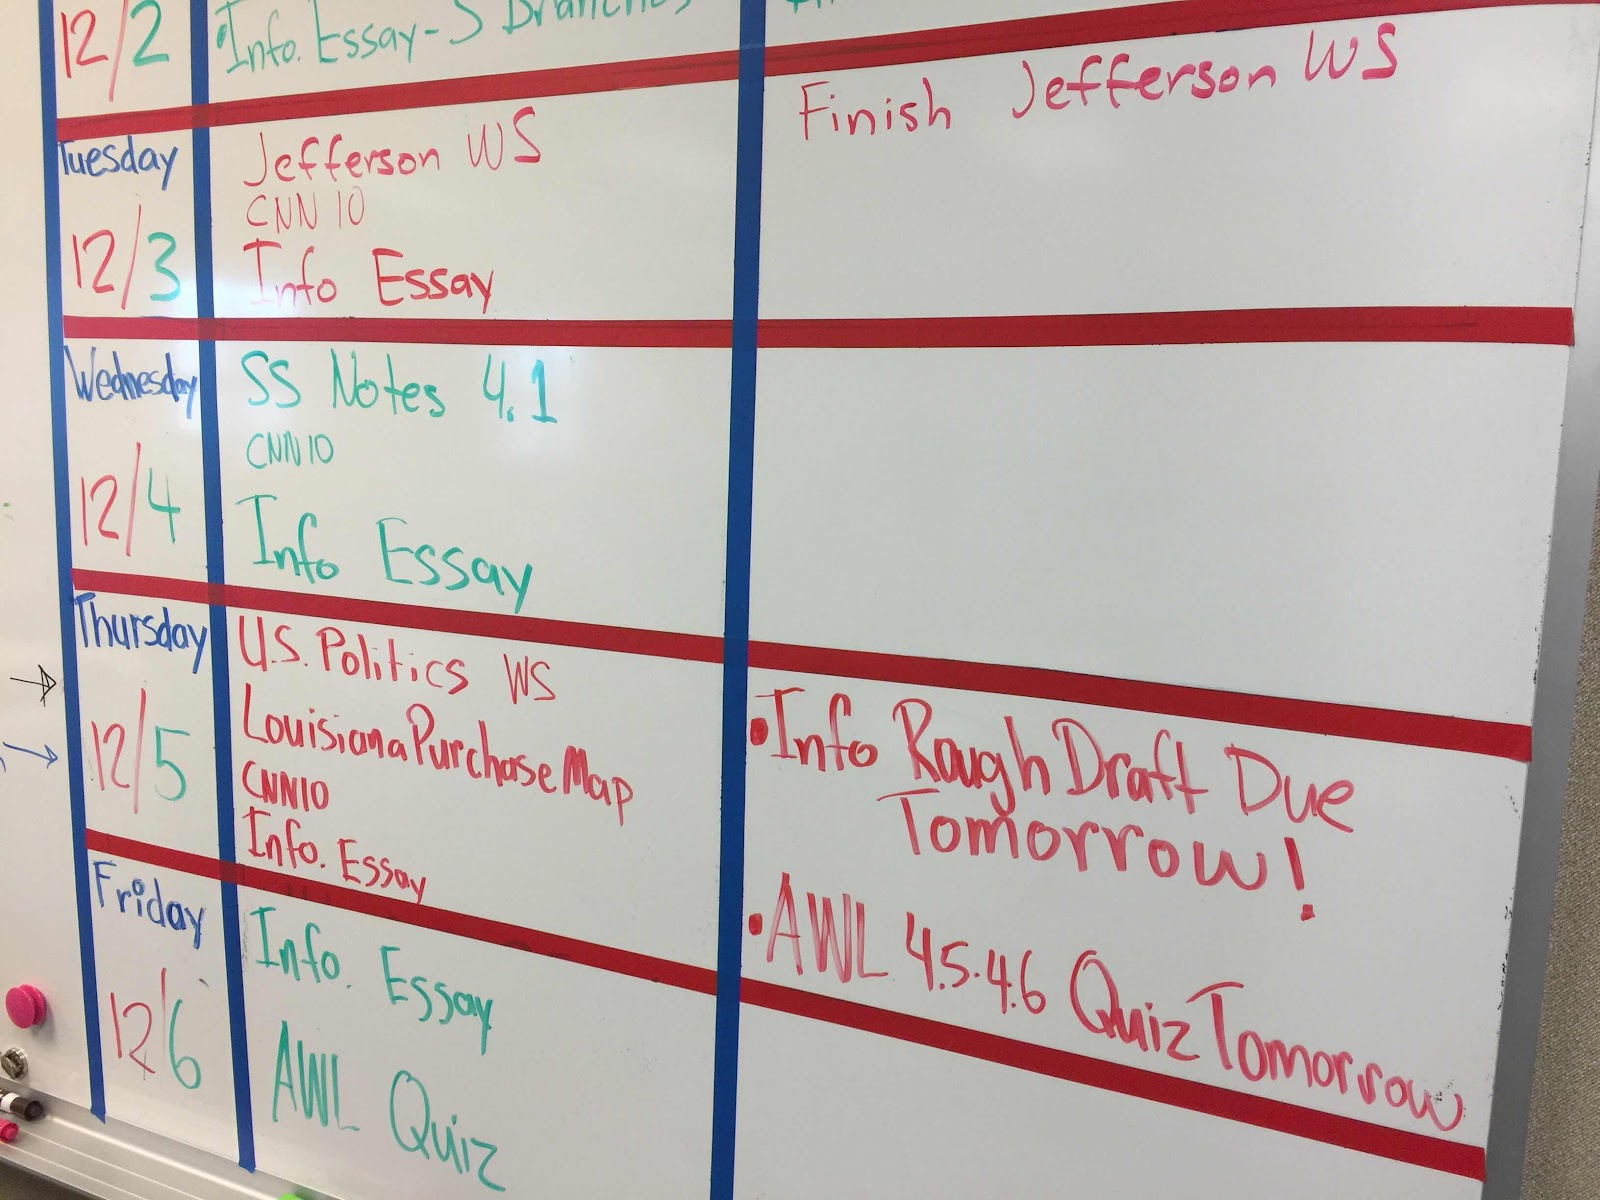 12/2
•Info. Essay-3 Branches
Tuesday
12/3
Jefferson WS
CNN 10
Info Essay
Finish Jefferson WS
Wednesday
12/4
SS Notes 4.1
CNN10
Info Essay
Thursday
12/5
U.S. Politics WS
Louisiana Purchase Map
CNN10
Info. Essay
•Info Rough Draft Due
Tomorrow!
•AWL 4.5-4.6 Quiz Tomorrow
Friday
12/6
Info. Essay
AWL Quiz